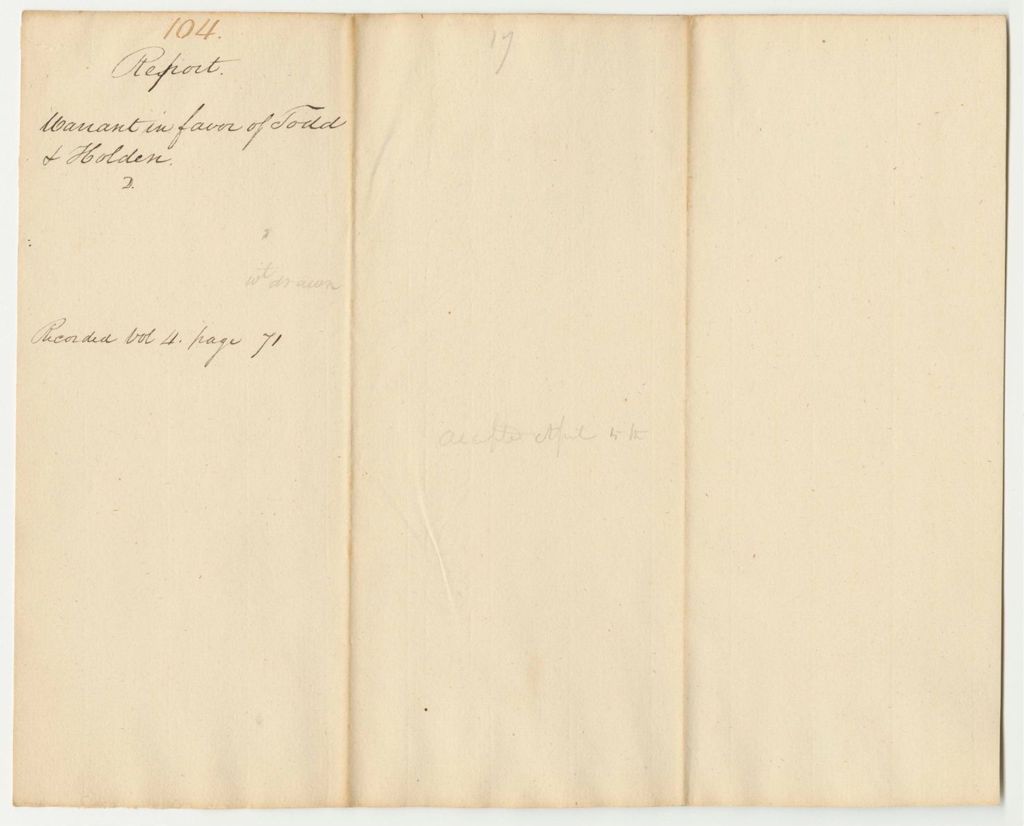 104.
Report.
Warrant in favor of Todd
& Holden.
D.
wt drawn
Recorded Vol 4. page 71
17
April 5th